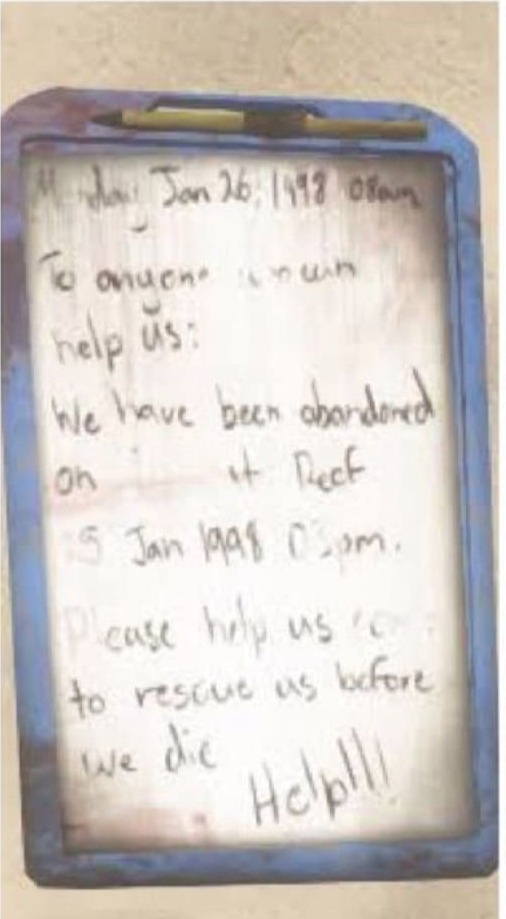 Jan 26, 1998 08am
To anyone
help us:
We have been abandoned
on Reef
Jan 1998
Please help us
to rescue us before
we die
Help!!!